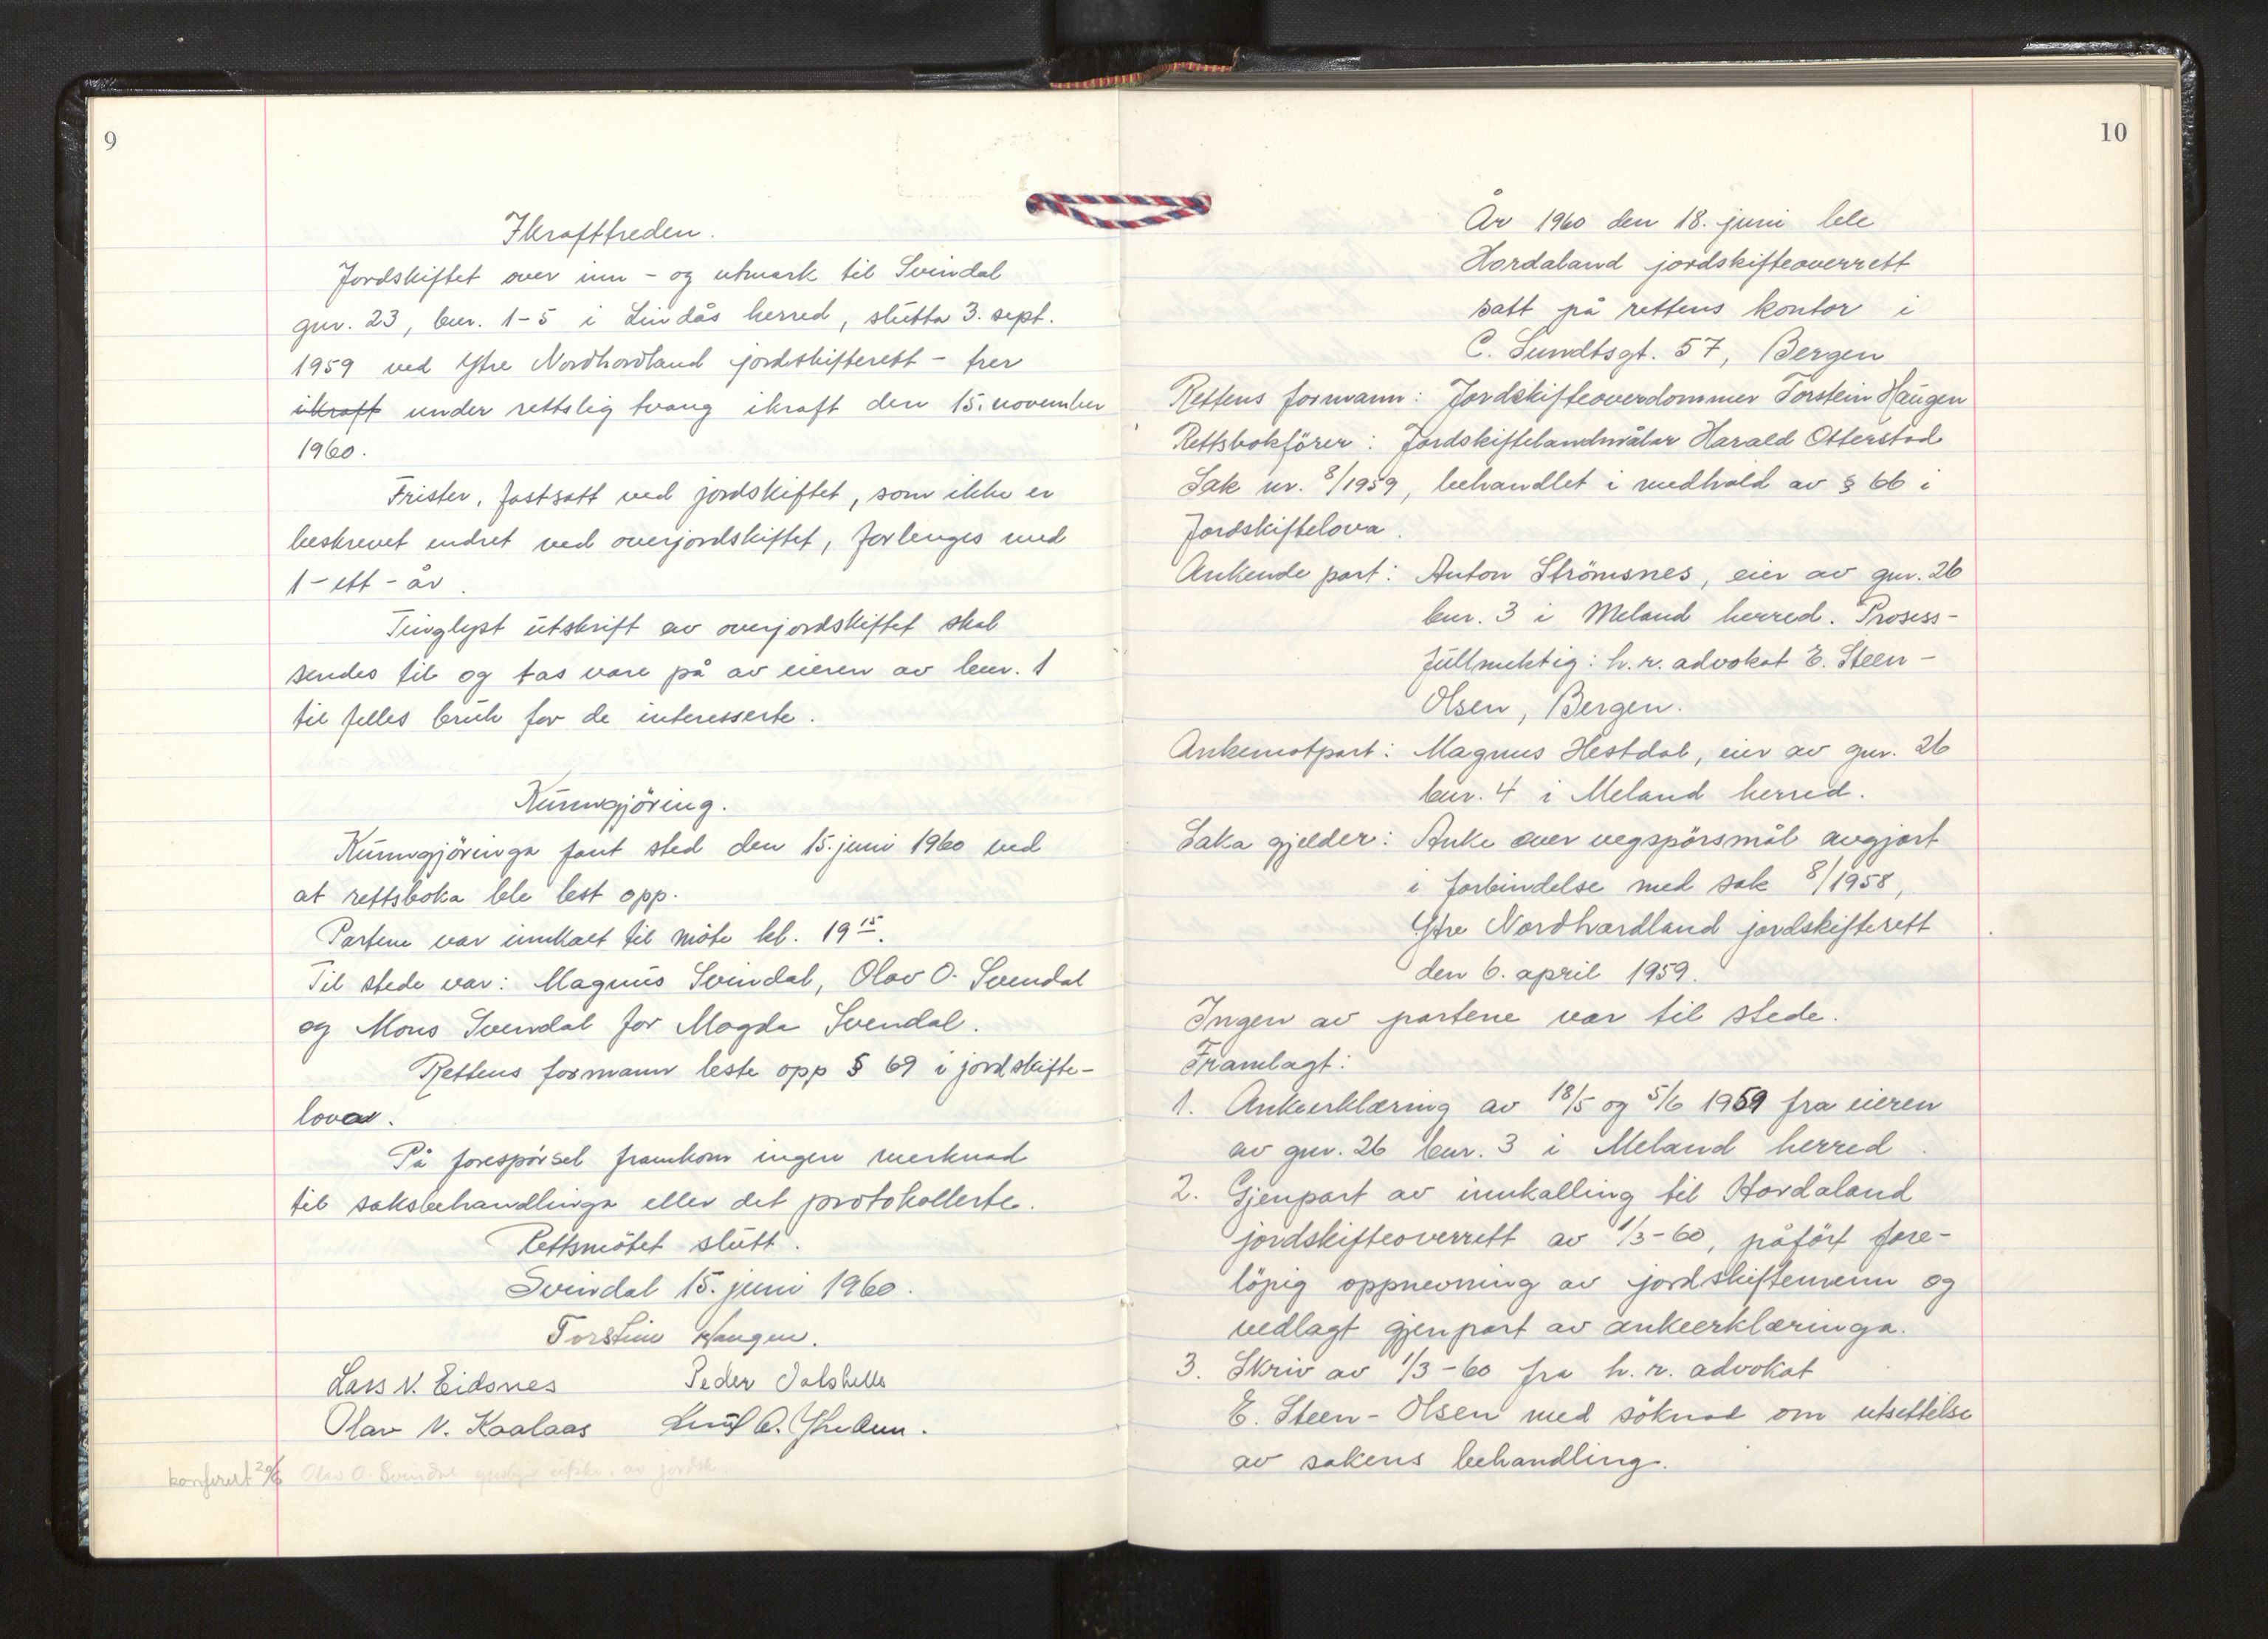 9
Ikrafttreden.
Jordskiftet over inn- og utmark til Svindal
gnr. 23, bnr. 1-5 i Lindås herred, slutta 3. sept.
1959 ved Ytre Nordhordland jordskifterett - trer
ikraft under rettslig tvang ikraft den 15. november
1960.
Frister, fastsatt ved jordskiftet, som ikke er
beskrevet endret ved overjordskiftet, forlenges med
1-ett-år.
Tinglyst utskrift av overjordskiftet skal
sendes til og tas vare på av eieren av bnr. 1
til felles bruk for de interesserte.
Kunngjöring.
Kunngjöringa fant sted den 15. juni 1960 ved
at rettsboka ble lest opp.
Partene var innkalt til möte kl. 19 15.
Til stede var: Magnus Svindal, Olav O. Svendal
og Mons Svendal for Magda Svendal.
Rettens formann leste opp § 69 i jordskifte-
lova.
På forespörsel framkom ingen merknad
til saksbehandlinga eller det protokollerte.
Rettsmötet slutt.
Svindal 15. juni 1960.
Torstein Haugen.
Lars N. Eidsnes Peder
Olav N. Kaalaas Knut
konferert 20/6 Olav O. Svindal av jordsk.
10
År 1960 den 18. juni ble
Hordaland jordskifteoverrett
satt på rettens kontor i
C. Sundtsgt. 57, Bergen
Rettens formann: Jordskifteoverdommer Torstein Haugen
Rettsbokförer: Jordskiftelandmåler Harald Otterstad
Sak nr. 8/1959, behandlet i medhold av § 66 i
Jordskiftelova.
Ankende part: Anton Strömsnes, eier av gnr. 26
bnr. 3 i Meland herred. Prosess-
fullmektig: h.r. advokat E. Steen-
Olsen, Bergen.
Ankemotpart: Magnus Hestdal, eier av gnr. 26
bnr. 4 i Meland herred.
Saka gjelder: Anke over vegspörsmål avgjort
i forbindelse med sak 8/1958,
Ytre Nordhordland jordskifterett
den 6. april 1959.
Ingen av partene var til stede.
Framlagt:
1. Ankeerklæring av 18/5 og 5/6 1959 fra eieren
av gnr. 26 bnr. 3 i Meland herred.
2. Gjenpart av innkalling til Hordaland
jordskifteoverrett av 1/3-60, påfört fore-
löpig oppnevning av jordskiftemenn og
vedlagt gjenpart av ankeerklæringa.
3. Skriv av 1/3-60 fra h.r. advokat
E. Steen-Olsen med söknad om utsettelse
av sakens behandling.